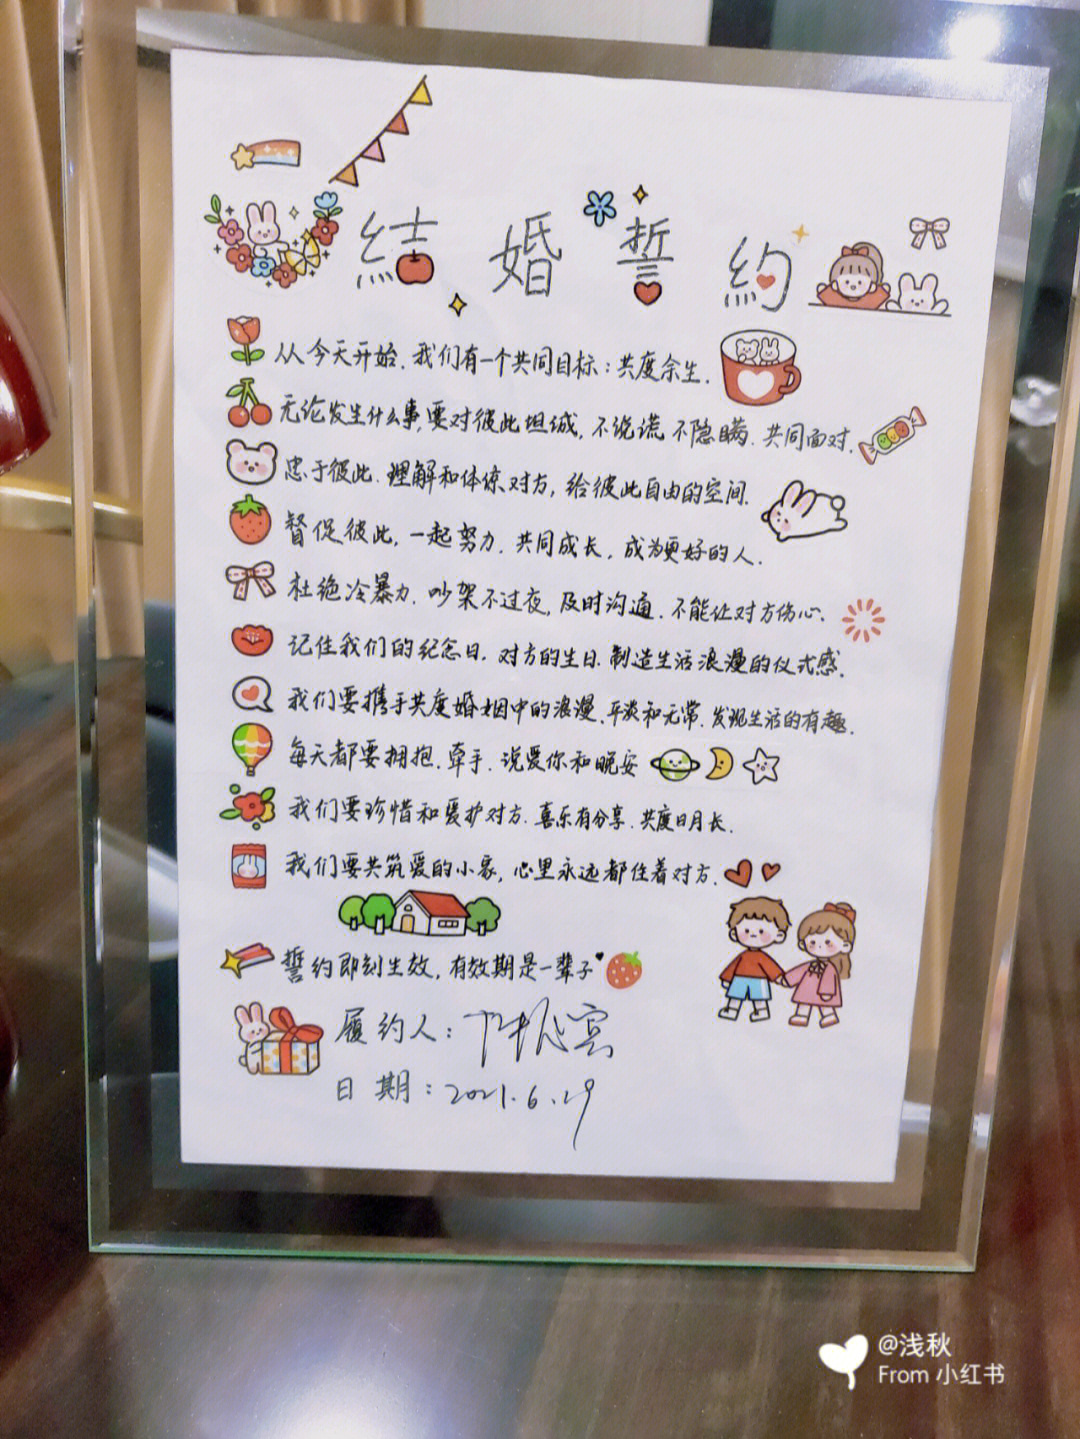 結婚誓約
从今天开始.我们有一个共同目标:共度余生.
无论发生什么事,要对彼此坦诚,不说谎 不隐瞒.共同面对.
忠于彼此.理解和体谅对方,给彼此自由的空间.
督促彼此,一起努力.共同成长,成为更好的人.
杜绝冷暴力.吵架不过夜,及时沟通.不能让对方伤心.
记住我们的纪念日.对方的生日.制造生活浪漫的仪式感.
我们要携手共度婚姻中的浪漫.平淡和无常.发现生活的有趣.
每天都要拥抱.牵手.说爱你和晚安
我们要珍惜和爱护对方.喜乐有分享.共度日月长.
我们要共筑爱的小家,心里永远都住着对方.
誓约即刻生效,有效期是一辈子
履约人:
日期:2021.6.29
@浅秋
From 小红书